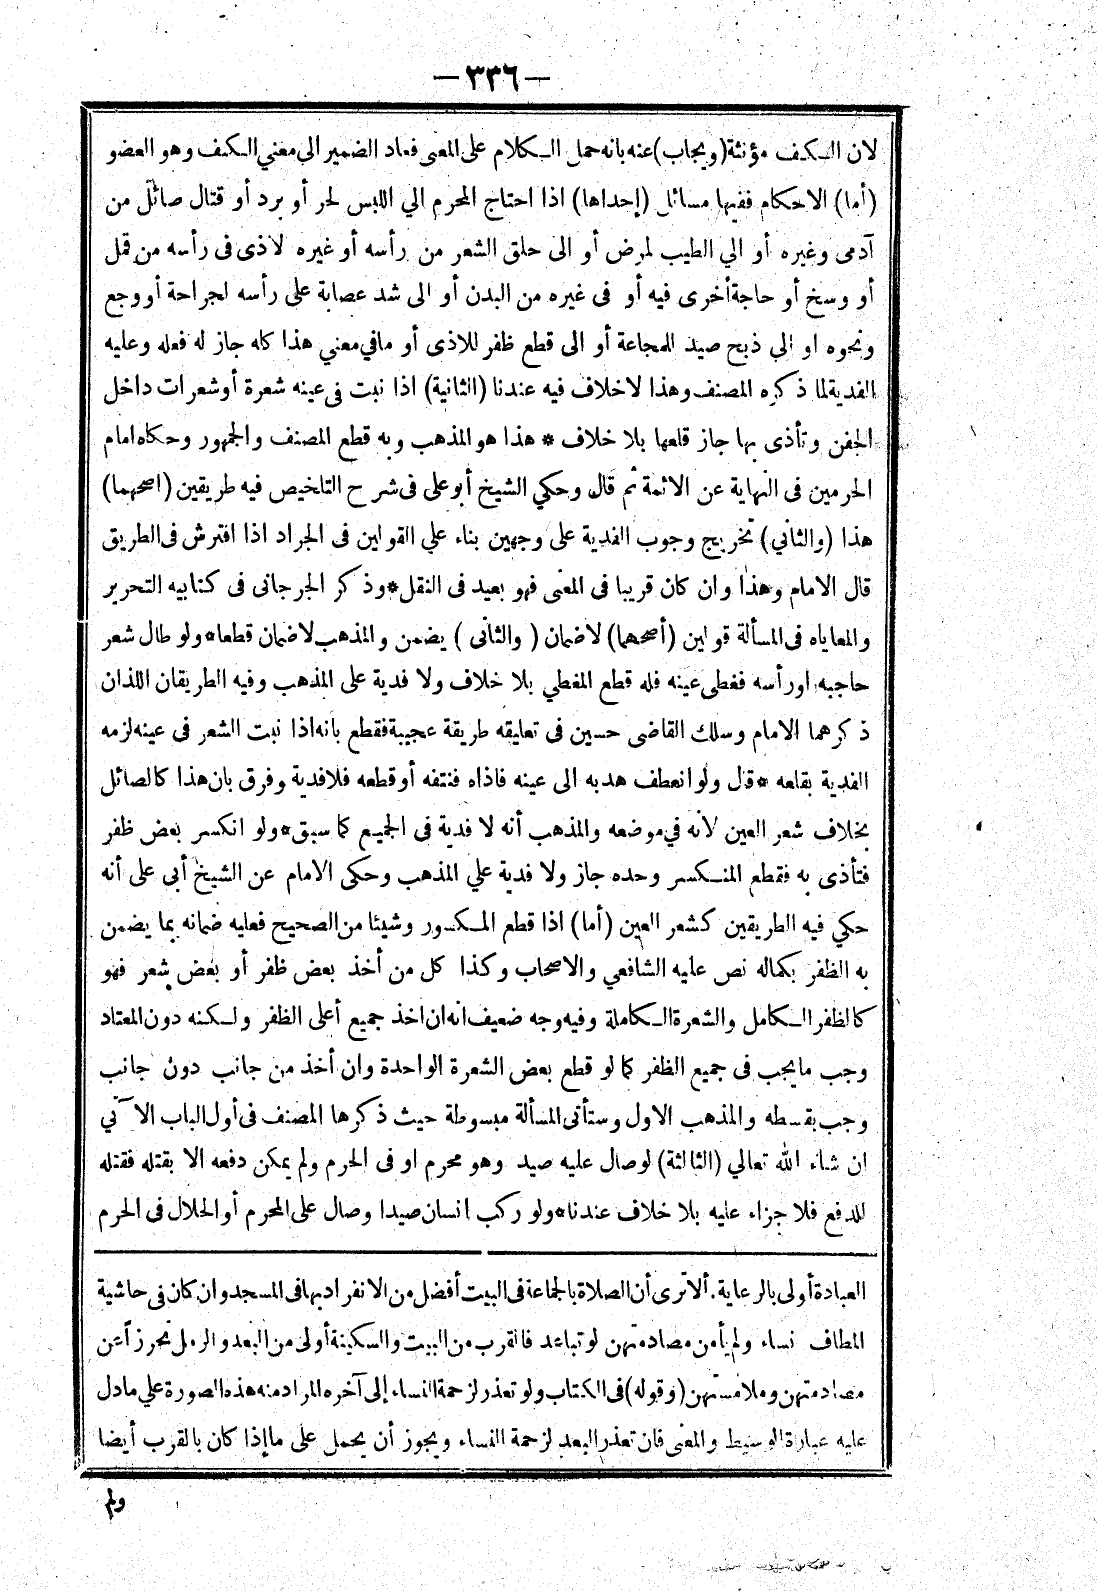 -٣٣٦-
لان الكف مؤنثة (ويجاب) عنه بانه حمل الكلام على المعنى فعاد الضمير الى معني الكف وهو العضو
(أما) الاحكام ففيها مسائل (إحداها) اذا احتاج المحرم الي اللبس لحر أو برد أو قتال صائل من
آدمى وغيره أو الي الطيب لمرض أو الى حلق الشعر من رأسه أو غيره لاذى فى رأسه من قمل
أو وسخ أو حاجة أخرى فيه أو فى غيره من البدن أو الى شد عصابة على رأسه لجراحة أو وجع
ونحوه او الي ذبح صيد للمجاعة أو الى قطع ظفر للاذى أو مافي معني هذا كله جاز له فعله وعليه
الفدية لما ذكره المصنف وهذا لاخلاف فيه عندنا (الثانية) اذا نبت فى عينه شعرة أو شعرات داخل
الجفن وتأذى بها جاز قلعها بلا خلاف * هذا هو المذهب وبه قطع المصنف والجمهور وحكاه امام
الحرمين فى النهاية عن الائمة ثم قال وحكي الشيخ أبو على فى شرح التلخيص فيه طريقين (اصحهما)
هذا (والثاني) تخريج وجوب الفدية على وجهين بناء علي القولين فى الجراد اذا افترش فى الطريق
قال الامام وهذا وان كان قريبا فى المعنى فهو بعيد فى النقل * وذكر الجرجانى فى كتابيه التحرير
والمعاياه فى المسألة قولين (أصحهما) لاضمان ( والثانى ) يضمن والمذهب لاضمان قطعا * ولو طال شعر
حاجبه اورأسه فغطى عينه فله قطع المغطي بلا خلاف ولا فدية على المذهب وفيه الطريقان اللذان
ذكرهما الامام وسلك القاضى حسين فى تعليقه طريقة عجيبة فقطع بانه اذا نبت الشعر فى عينه لزمه
الفدية بقلعه * قال ولو انعطف هدبه الى عينه فاذاه فنتفه أو قطعه فلافدية وفرق بان هذا كالصائل
بخلاف شعر العين لانه في موضعه والمذهب أنه لا فدية فى الجميع كما سبق * ولو انكسر بعض ظفر
فتأذى به فقطع المنكسر وحده جاز ولا فدية علي المذهب وحكى الامام عن الشيخ أبى على أنه
حكي فيه الطريقين كشعر العين (أما) اذا قطع المكسور وشيئا من الصحيح فعليه ضمانه بما يضمن
به الظفر بكماله نص عليه الشافعي والاصحاب وكذا كل من أخذ بعض ظفر أو بعض شعر فهو
كالظفر الكامل والشعرة الكاملة وفيه وجه ضعيف انه ان اخذ جميع أعلى الظفر ولكنه دون المعتاد
وجب مايجب فى جميع الظفر كما لو قطع بعض الشعرة الواحدة وان أخذ من جانب دون جانب
وجب بقسطه والمذهب الاول وستأتى المسألة مبسوطة حيث ذكرها المصنف فى أول الباب الآتي
ان شاء الله تعالي (الثالثة) لوصال عليه صيد وهو محرم او فى الحرم ولم يمكن دفعه الا بقتله فقتله
للدفع فلا جزاء عليه بلا خلاف عندنا * ولو ركب انسان صيدا وصال على المحرم أو الحلال فى الحرم
العبادة أولى بالرعاية . ألاترى أن الصلاة بالجماعة فى البيت أفضل من الانفراد بها فى المسجد وان كان فى حاشية
المطاف نساء ولم يأمن مصادمتهن لو تباعد فالقرب من البيت والسكينة أولى من البعد والرمل تحرزاً عن
مصادمتهن وملامستهن (وقوله) فى الكتاب ولو تعذر لزحمة النساء إلى آخره المراد منه هذه الصورة علي مادل
عليه عبارة الوسيط والمعنى فان تعذر البعد لزحمة النساء ويجوز أن يحمل على ما إذا كان بالقرب أيضا
ولم